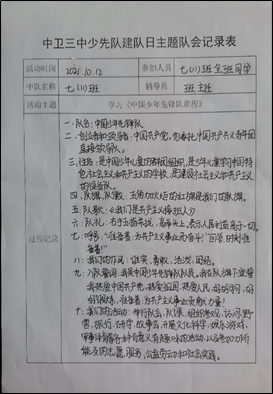 中卫三中少先队建队日主题队会记录表
活动时间 2021.10.12 参加人员 七(11)班全班同学
中队名称 七(11)班 辅导员 班主任
活动主题 学习《中国少年先锋队章程》
过程记录
一、队名:中国少年先锋队
二、创立者和领导者:中国共产党,党委托中国共产主义青年团
直接领导队。
三、性质:是中国少年儿童的群团组织,是少年儿童学习中国特
色社会主义和共产主义的学校,是建设社会主义和共产主义
的预备队。
四、队旗、队徽:五角加火炬的红旗是我们的队旗。
五、队歌:《我们是共产主义接班人》
六、队礼:右手五指并拢,高举头上,表示人民利益高于一切。
七、呼号:“准备着:为共产主义事业而奋斗!”回答:“时刻准
备着!”
八、我们的作风:诚实、勇敢、活泼、团结。
九、入队誓词:我是中国少年先锋队队员。我在队旗下宣誓
我热爱中国共产党,热爱祖国,热爱人民,好好学习,好
好锻炼,准备着:为共产主义事业贡献力量!
十、我们的活动:举行队会,队课,组织参观、访问、野
营、旅行、研学、故事会,开展文化科学、娱乐游戏、
军事体育等各种有意义有趣味的活动,以及参加力所
能及的志愿服务、公益劳动和社会实践。